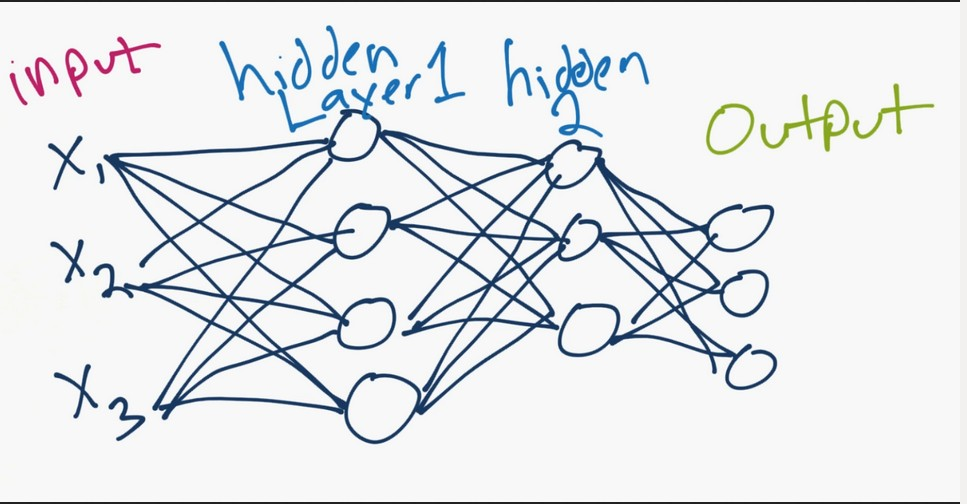 input
hidden
Layer 1
hidden
2
Output
X1
X2
X3